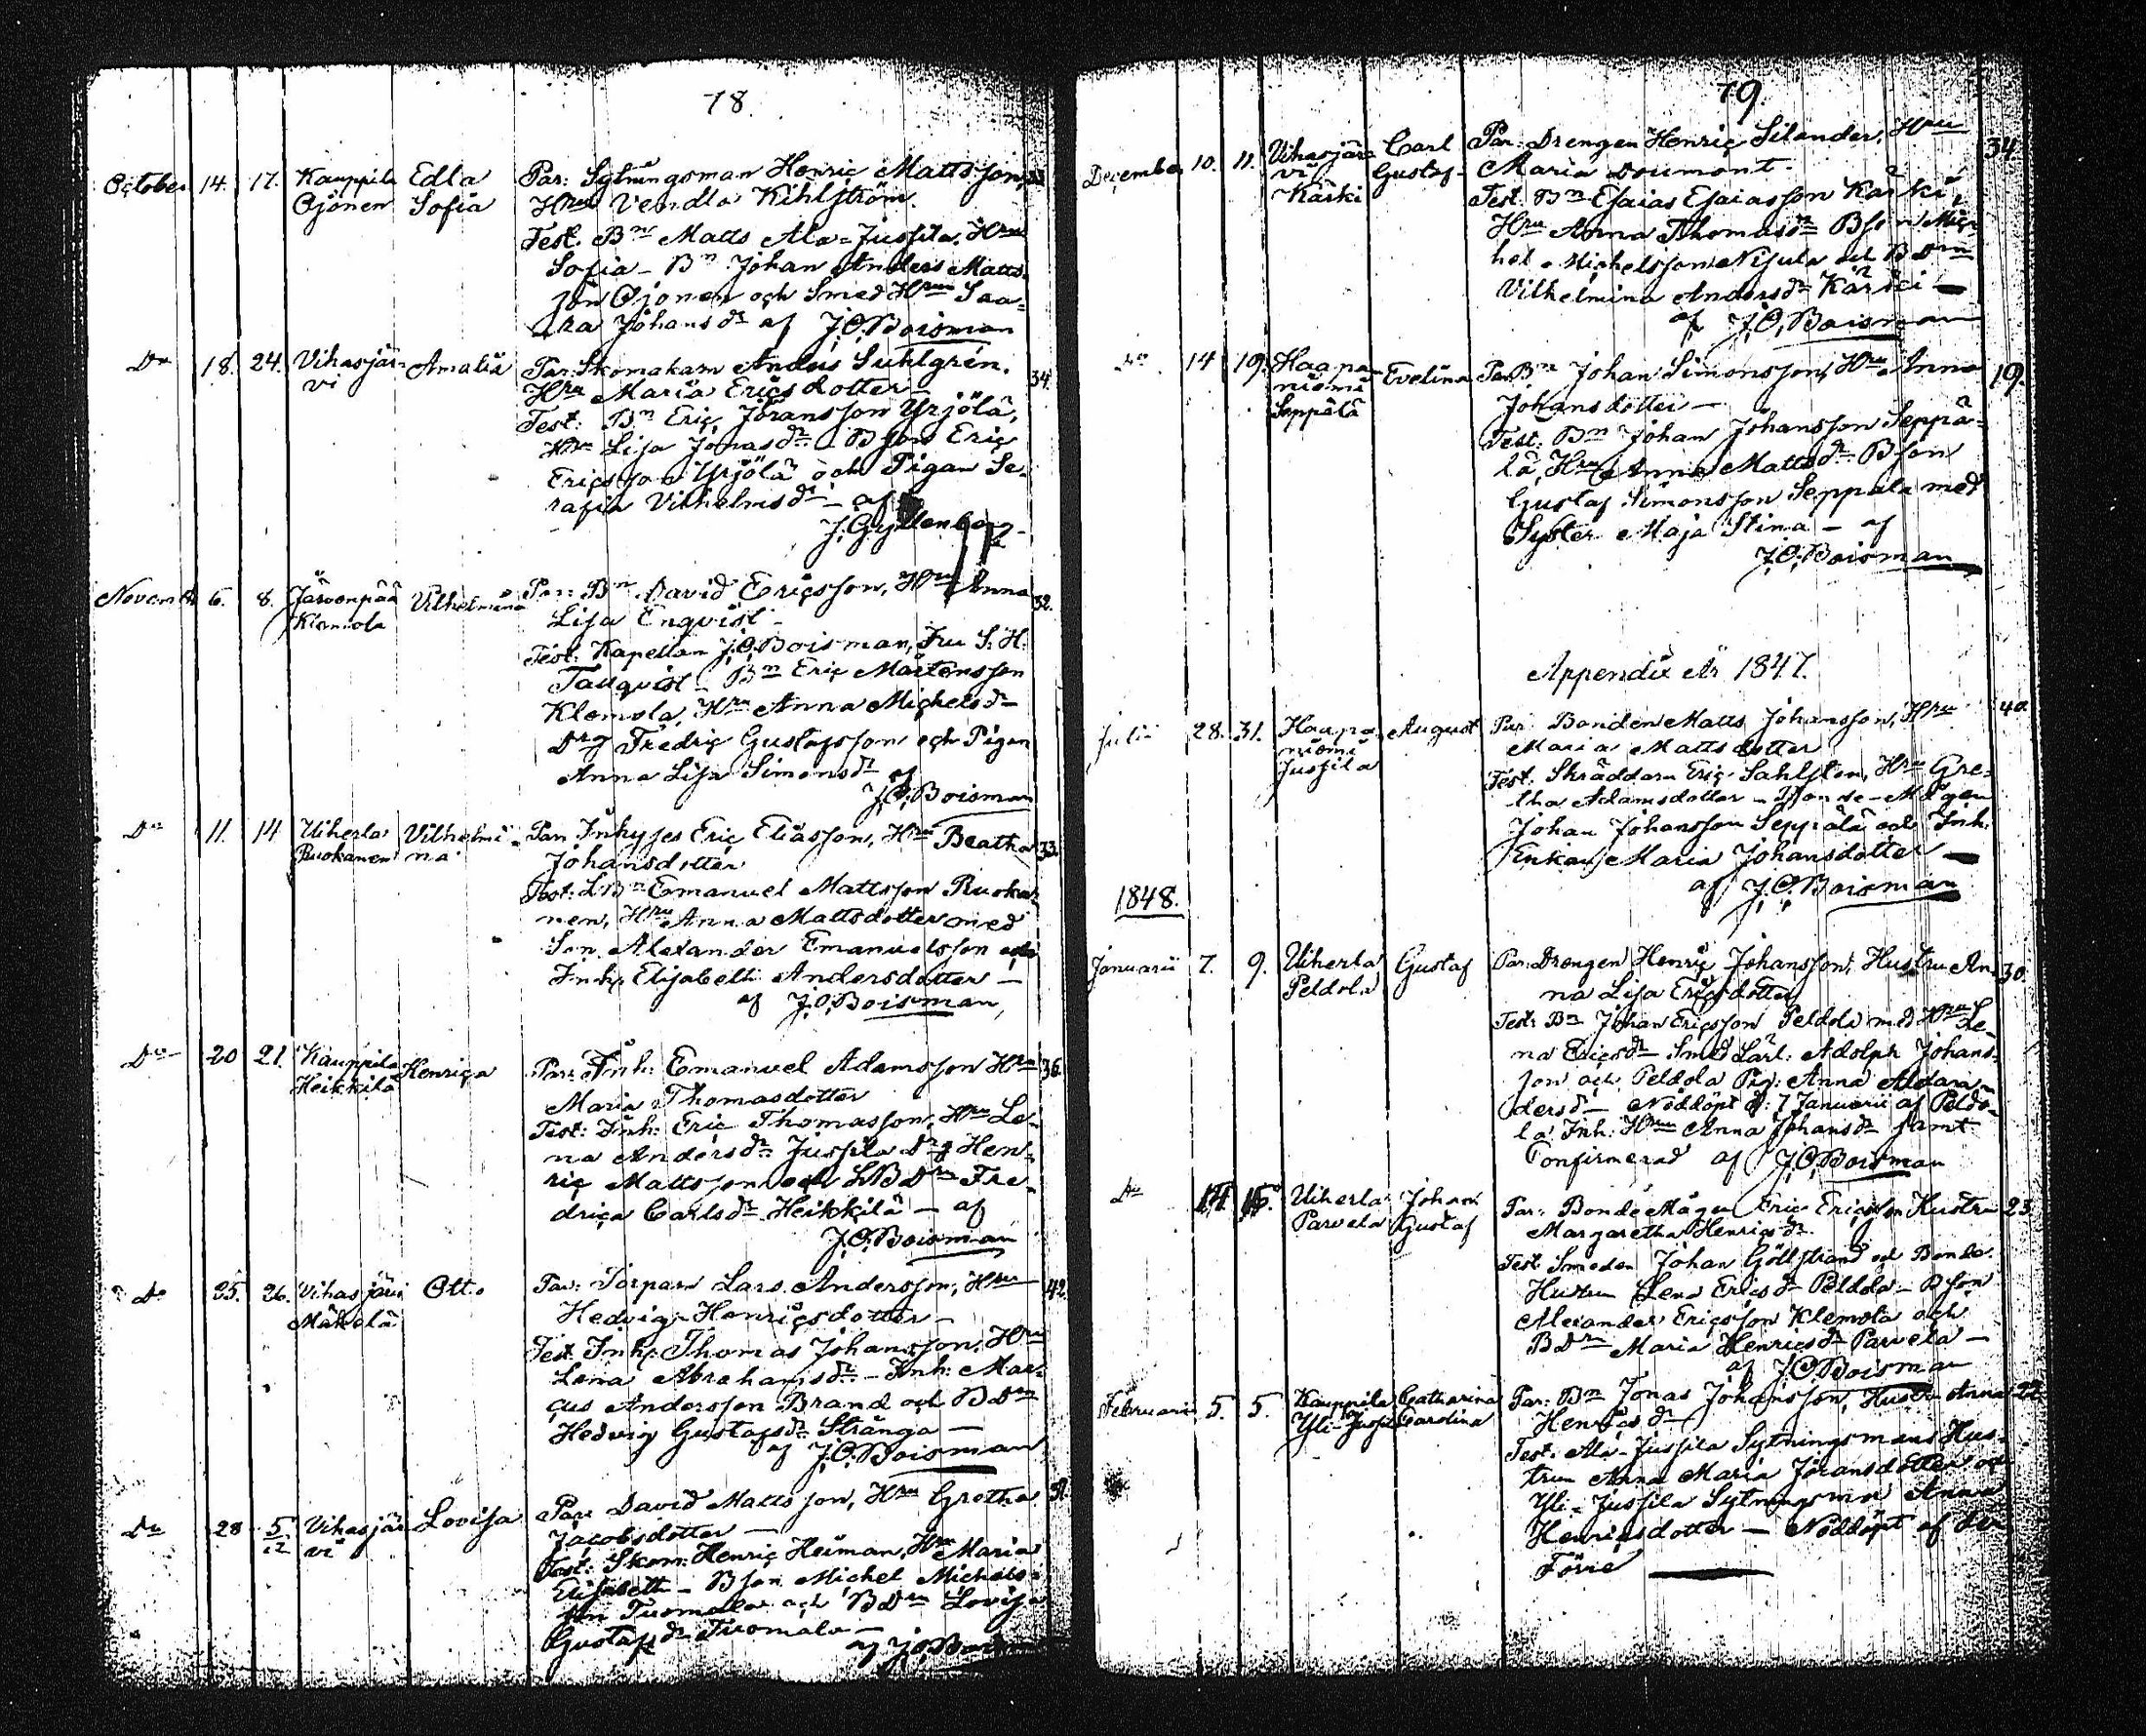 78.
October 14. 17. Kauppila Edla Par: Sytningsman Henric Mattsson, 33
Ojonen Sofia Hru Vendla Kihlström.
Test. Bn Matts Ala-Jussila, Hru
Sofia – Bn Johan Anders Matts-
son Ojonen och Smed Hru Saa-
ra Johansdr af J.O. Boisman
Do 18. 24. Vihasjär- Amalia Par: Skomakarn Anders Suhlgrén. 34.
vi Hru Maria Ericsdotter –
Test: Bn Eric Jöransson Yrjölä,
Hru Lisa Jonasdr – Bson Eric
Ericsson Yrjölä och Pigan Se-
rafia Vilhelmsdr – af
J. Gyllenberg
Novemb 6. 8. Järvenpää Vilhelmina Par: Bn David Ericsson, Hru Anna 32.
Klemola Lisa Enqvist –
Test: Kapellan J.O. Boisman, Fru S. H.
Tauqvist – Bn Eric Mårtensson
Klemola, Hru Anna Michelsdr –
Drg Fredric Gustafsson och Pigan
Anna Lisa Simonsdr af
J.O. Boisman
Do 11. 14 Uiherla Vilhelmi- Par: Inhyses Eric Eliasson, Hru Beatha 33.
Ruokanen na Johansdotter
Test: LBn Emanuel Mattsson Ruoka-
nen, Hru Anna Mattsdotter med
Son Alexander Emanuelsson och
Inh: Elisabeth Andersdotter –
af J.O. Boisman,
Do 20 21. Kauppila Henrica Par: Inh: Emanuel Adamsson Hru 36.
Heikkilä Maria Thomasdotter
Test: Inh: Eric Thomasson, Hru Le-
na Andersdr Jussila Drg Hen-
ric Mattsson och LBDn Fre-
drica Carlsdr Heikkilä – af
J.O. Boisman
Do 25. 26. Vihasjärvi Otto Par: Torparn Lars Andersson, Hru 42.
Mäkelä Hedvig Henricsdotter –
Test: Inh: Thomas Johansson, Hru
Lena Abrahamsdr – Inh: Mar-
cus Andersson Brand och BDn
Hedvig Gustafsdr Stränga –
af J.O. Boisman
Do 28 5/12 Vihasjär Lovisa Par: David Mattsson, Hru Gretha
vi Jacobsdotter –
Test: Skom: Henric Heiman, Hru Maria
Elisabeth – Bson Michel Michels-
son Tuomala och BDn Lovisa
Gustafsdr Tuomala –
af J.O. Boisman
79.
December 10. 11. Vihasjär- Carl Par: Drengen Henric Silander, Hru 34.
vi Gustaf Maria Doumont.
Kärki Test: Bn Esaias Esaiasson Kärki,
Hru Anna Thomasdr Bson Mic-
hel Michelsson Nisula och BDn
Vilhelmina Andersdr Kärki –
af J.O. Boisman
Do 14 19. Haapa- Evelina Par: Bn Johan Simonsson, Hru Anna 19.
niemi Johansdotter –
Seppälä Test: Bn Johan Johansson Seppä-
lä, Hru Anna Mattsdr Bson
Gustaf Simonsson Seppälä med
Syster Maja Stina – af
J.O. Boisman
Appendix År 1847.
Julii 28. 31. Haapa- August Par: Bonden Matts Johansson, Hru 40.
niemi Maria Mattsdotter
Jussila Test. Skräddarn Eric Sahlsten, Hru Gre-
tha Adamsdotter – Bonde-Mågen
Johan Johansson Seppälä och Inh:
Enkan Maria Johansdotter –
af J.O. Boisman
1848.
Januarii 7. 9. Uiherla Gustaf Par: Drengen Henric Johansson, Hustru An- 30.
Peldola na Lisa Ericsdotter
Test: Bn Johan Ericsson Peldola med Hru Le-
na Ericsdr – Smed Lärl: Adolph Johans-
son och Peldola Pig: Anna
dersdr – Nöddöpt d: 7 Januarii af Peldo-
la Inh: Hru Anna Johansdr samt
Confirmerad af J.O. Boisman
Do 14 16. Uiherla Johan Par: Bonde Mågen Eric Ericsson Hustru 23.
Parvela Gustaf Margaretha Henricsdr.
Test: Smeden Johan Göllstrand och Bonde
Hustrun Lena Ericsdr Peldola – Bson
Alexander Ericsson Klemola och
BDn Maria Henricsdr Parvela –
af J.O. Boisman
Februarii 5. 5. Kauppila Catharina Par: Bn Jonas Johansson, Hustr Anna 22.
Yli-Jussila Carolina Henricsdr
Test: Ala-Jussila Sytningsmans Hus-
trun Anna Maria Jöransdotter och
Yli-Jussila Sytningsmn Anna
Henricsdotter – Nöddöpt af den
Förre